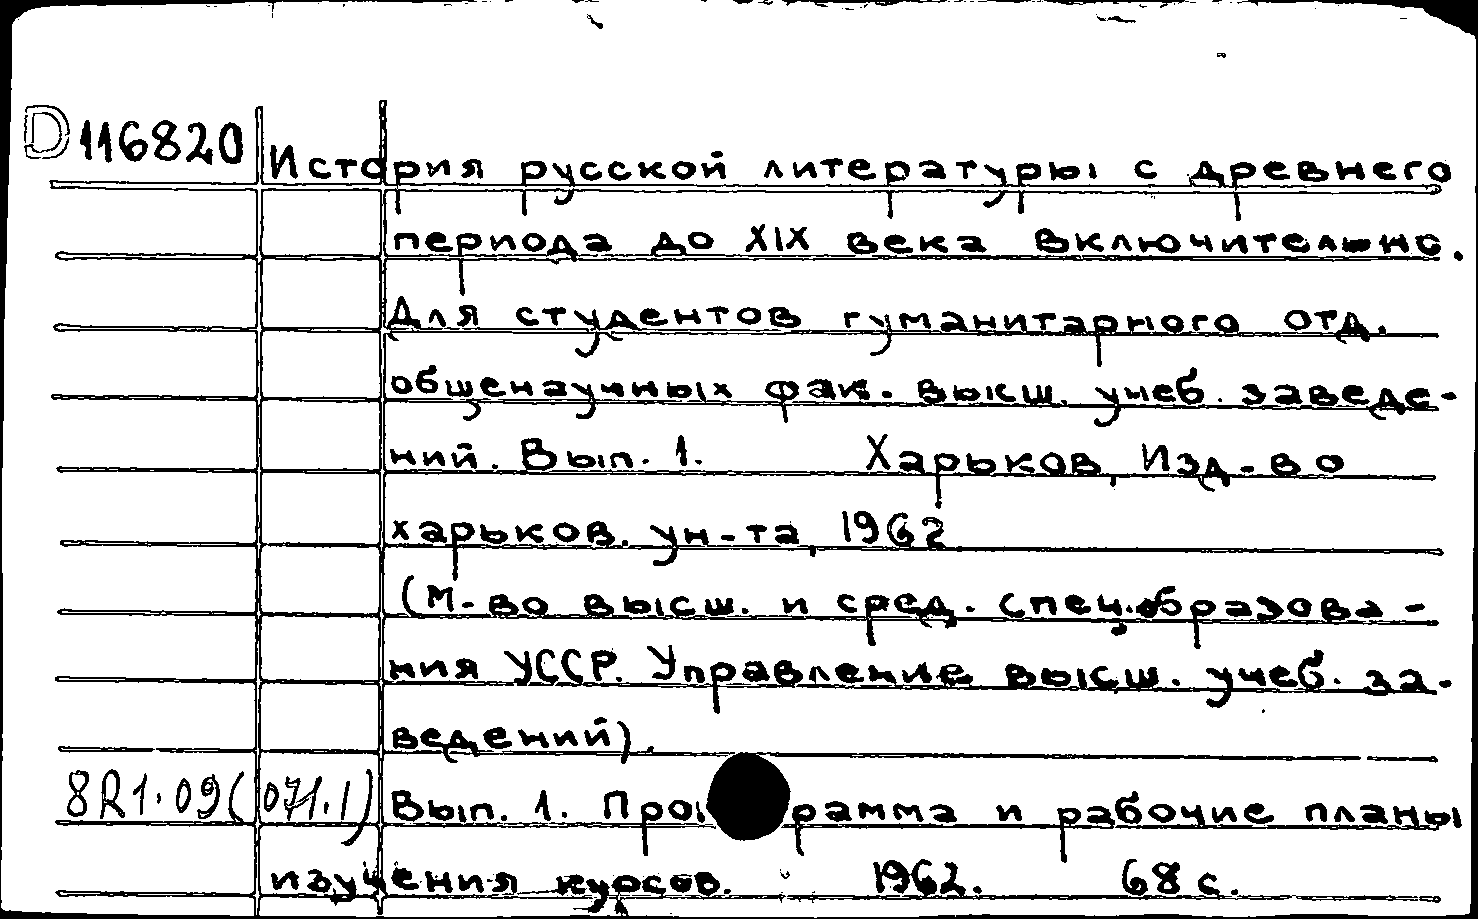 D 116820 История русской литературы с древнего
периода до XIX века включительно.
Для студентов гуманитарного отд.
общенаучных фак. высш. учеб. заведе-
ний. Вып. 1. Харьков, Изд-во
харьков. ун-та, 1962
(М-во высш. и сред. спец. образова-
ния УССР. Управление высш. учеб. за-
ведений).
8R1.09(071.1) Вып. 1. Программа и рабочие планы
изучения курсов. 1962. 68 с.